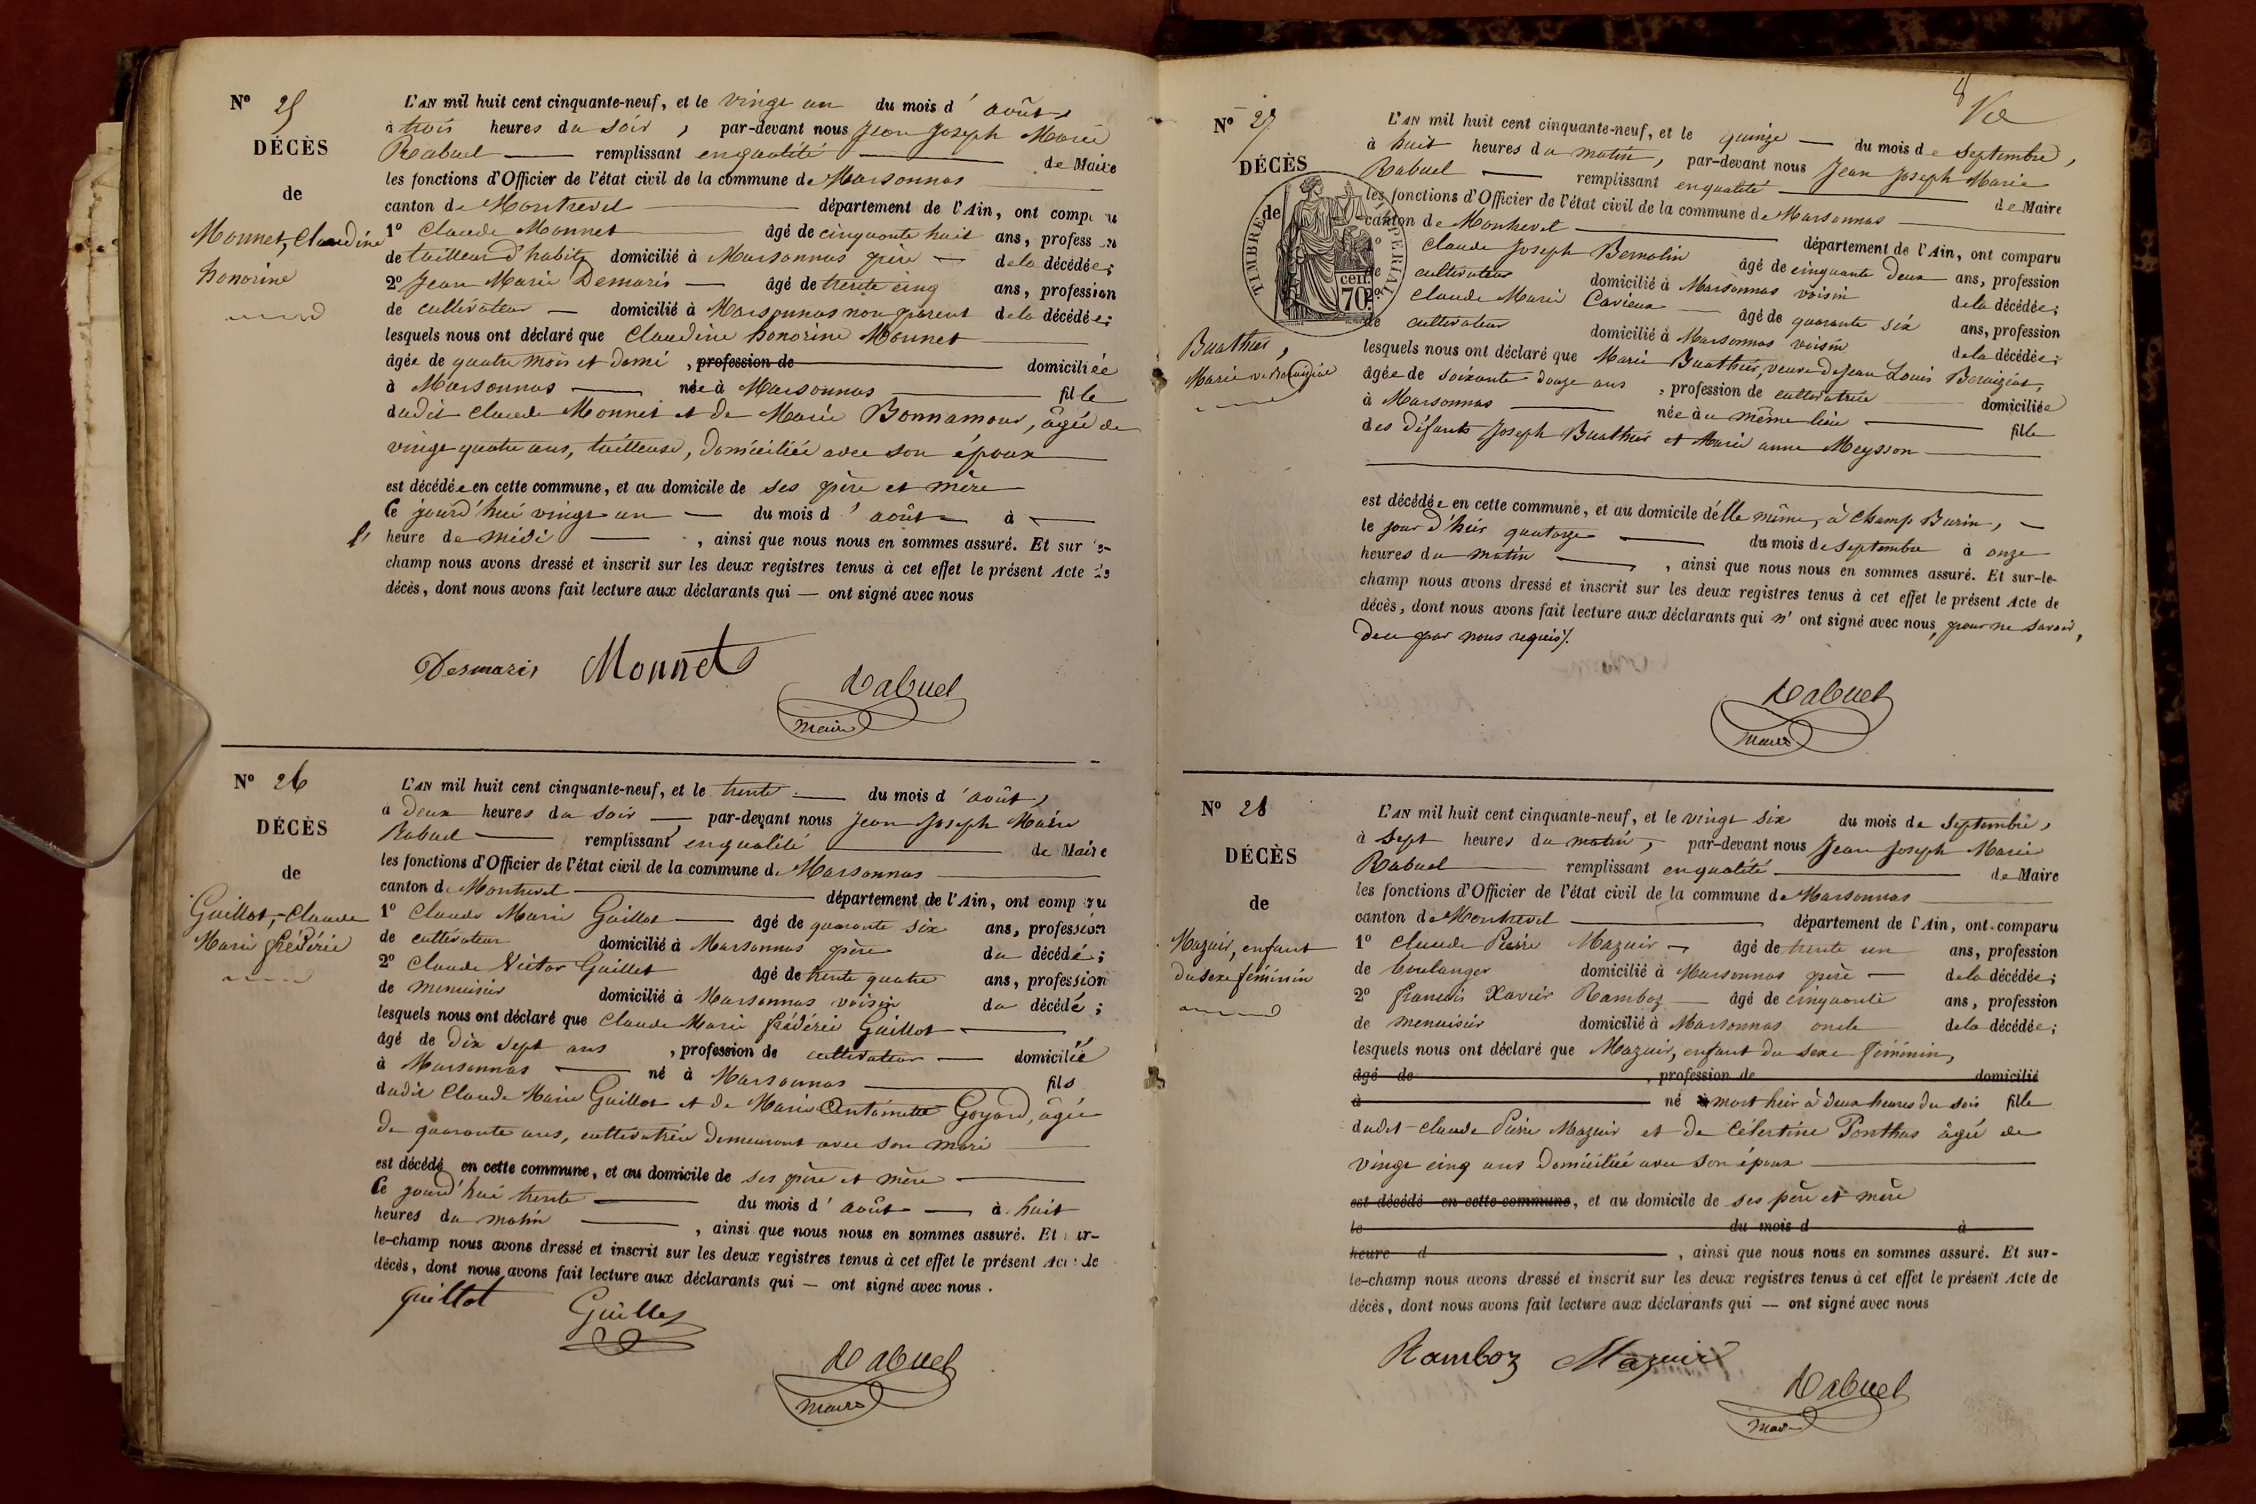 Nº 25
DÉCÈS
de
Monnet, Claudine
honorine
L'AN mil huit cent cinquante-neuf, et le vingt un du mois d'août,
à trois heures du soir, par-devant nous Jean Joseph Marie
Rabuel remplissant en qualité de Maire
les fonctions d'Officier de l'état civil de la commune de Marsonnas
canton de Montrevel département de l'Ain, ont comparu
1º Claude Monnet âgé de cinquante huit ans, profession
de tailleur d'habits domicilié à Marsonnas père de la décédée;
2º Jean Marie Demaris âgé de trente cinq ans, profession
de cultivateur domicilié à Marsonnas non parent de la décédée;
lesquels nous ont déclaré que Claudine honorine Monnet
âgée de quatre mois et demi, profession de domiciliée
à Marsonnas née à Marsonnas fille
dudit Claude Monnet et de Marie Bonnamour, âgée de
vingt quatre ans, tailleuse, domiciliée avec son époux
est décédée en cette commune, et au domicile de ses père et mère
Ce jourd'hui vingt un du mois d'août à
l'heure de midi, ainsi que nous nous en sommes assuré. Et sur-le-
champ nous avons dressé et inscrit sur les deux registres tenus à cet effet le présent Acte de
décès, dont nous avons fait lecture aux déclarants qui — ont signé avec nous
Desmaris Monnet
Rabuel
maire
Nº 26
DÉCÈS
de
Guillot, Claude
Marie frédéric
L'AN mil huit cent cinquante-neuf, et le trente du mois d'août,
à deux heures du soir par-devant nous Jean Joseph Marie
Rabuel remplissant en qualité de Maire
les fonctions d'Officier de l'état civil de la commune de Marsonnas
canton de Montrevel département de l'Ain, ont comparu
1º Claude Marie Guillot âgé de quarante six ans, profession
de cultivateur domicilié à Marsonnas père du décédé;
2º Claude Victor Guillet âgé de trente quatre ans, profession
de menuisier domicilié à Marsonnas voisin du décédé;
lesquels nous ont déclaré que Claude Marie frédéric Guillot
âgé de dix sept ans, profession de cultivateur domicilié
à Marsonnas né à Marsonnas fils
dudit Claude Marie Guillot et de Marie Antoinette Goyard, âgée
de quarante ans, cultivatrice demeurant avec son mari
est décédé en cette commune, et au domicile de ses père et mère
Ce jourd'hui trente du mois d'août à huit
heures du matin, ainsi que nous nous en sommes assuré. Et sur-
le-champ nous avons dressé et inscrit sur les deux registres tenus à cet effet le présent Acte de
décès, dont nous avons fait lecture aux déclarants qui — ont signé avec nous.
Guillot Guillet
Rabuel
maire
8
Nº 27
DÉCÈS
de
TIMBRE IMPERIAL
70 cen.
Buathier,
Marie
L'AN mil huit cent cinquante-neuf, et le quinze du mois de Septembre,
à huit heures du matin, par-devant nous Jean Joseph Marie
Rabuel remplissant en qualité de Maire
les fonctions d'Officier de l'état civil de la commune de Marsonnas
canton de Montrevel département de l'Ain, ont comparu
1º Claude Joseph Bernolin âgé de cinquante deux ans, profession
de cultivateur domicilié à Marsonnas voisin de la décédée;
2º Claude Marie âgé de quarante six ans, profession
de cultivateur domicilié à Marsonnas voisin de la décédée;
lesquels nous ont déclaré que Marie Buathier, veuve de Jean Louis
âgée de soixante douze ans, profession de cultivatrice domiciliée
à Marsonnas née au même lieu fille
des défunts Joseph Buathier et Marie anne Meysson
est décédée en cette commune, et au domicile d'elle même, à champ Burin,
le jour d'hier quatorze du mois de Septembre à onze
heures du matin, ainsi que nous nous en sommes assuré. Et sur-le-
champ nous avons dressé et inscrit sur les deux registres tenus à cet effet le présent Acte de
décès, dont nous avons fait lecture aux déclarants qui n'ont signé avec nous, pour ne savoir,
de ce par nous requis.
Rabuel
maire
Nº 28
DÉCÈS
de
Mazuir, enfant
du sexe féminin
L'AN mil huit cent cinquante-neuf, et le vingt six du mois de Septembre,
à sept heures du matin, par-devant nous Jean Joseph Marie
Rabuel remplissant en qualité de Maire
les fonctions d'Officier de l'état civil de la commune de Marsonnas
canton de Montrevel département de l'Ain, ont comparu
1º Claude Pierre Mazuir âgé de trente un ans, profession
de boulanger domicilié à Marsonnas père de la décédée;
2º françois Xavier Ramboz âgé de cinquante ans, profession
de menuisier domicilié à Marsonnas oncle de la décédée;
lesquels nous ont déclaré que Mazuir, enfant du sexe féminin,
âgé de , profession de domicilié
à né mort hier à deux heures du soir fille
dudit Claude Pierre Mazuir et de Célestine Ponthus âgée de
vingt cinq ans domiciliée avec son époux
est décédé en cette commune, et au domicile de ses père et mère
le du mois d à
heure d , ainsi que nous nous en sommes assuré. Et sur-
le-champ nous avons dressé et inscrit sur les deux registres tenus à cet effet le présent Acte de
décès, dont nous avons fait lecture aux déclarants qui — ont signé avec nous
Ramboz Mazuir
Rabuel
maire